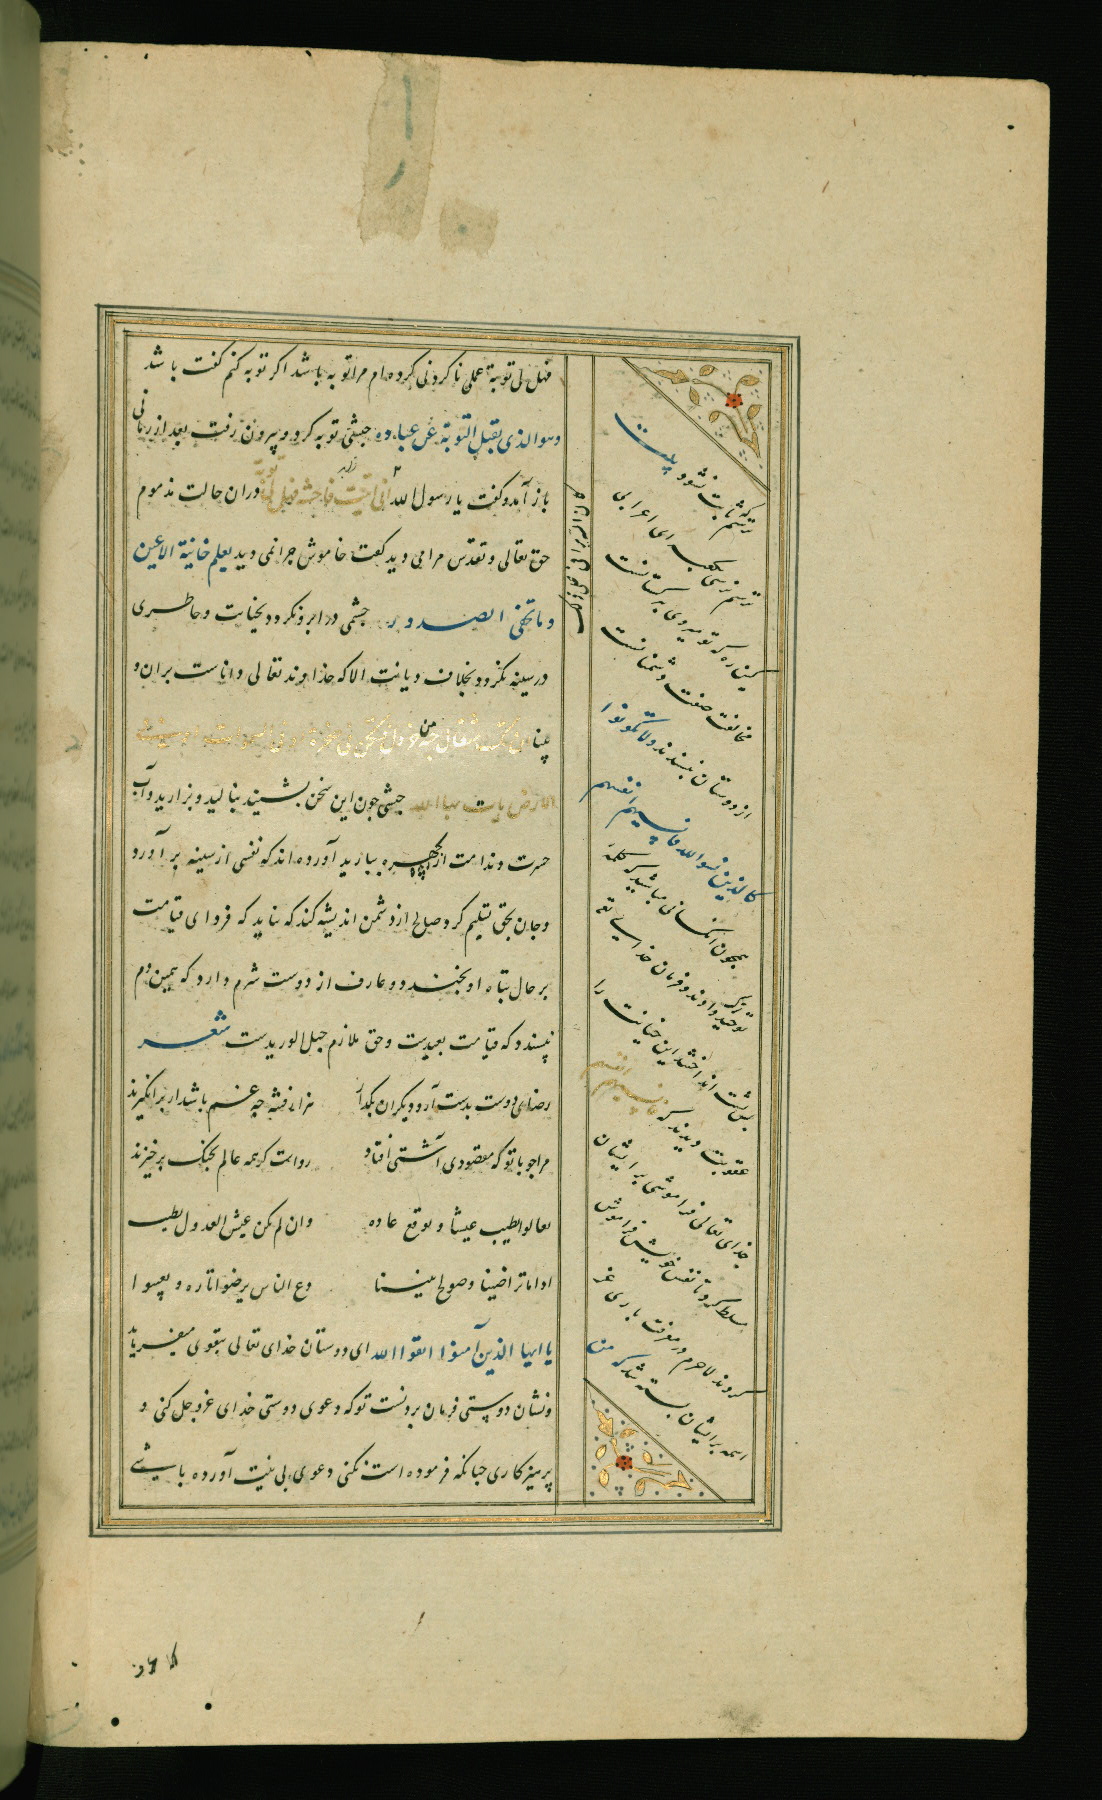 فهل لی توبة عملی ناکردنی کرده‌ام مرا توبه باشد اگر توبه کنم گفت باشد
وهو الذی یقبل التوبة عن عباده حبشی توبه کرد و بیرون رفت بعد از زمانی
باز آمد و گفت یا رسول الله انی اتیت فاحشة فهل لی توبة در ان حالت مذموم
حق تعالی و تقدس مرا می دید گفت خاموش چرا نمی دید یعلم خائنة الاعین
وما تخفی الصدور چشمی در ابرو نکرد و بخیانت و خاطری
در سینه نگزرد بخلاف دیانت الا که خداوند تعالی داناست بران و
بینا ان تک مثقال حبة من خردل فتکن فی صخرة او فی السموات او فی
الارض یات بها الله حبشی چون این سخن بشنید بنالید و بزارید و آب
حسرت و ندامت از چهره ببارید آورده‌اند که نفسی از سینه بر آورد
و جان بحق تسلیم کرد صالح از دشمن اندیشه کند که نباید که فردای قیامت
بر حال تباه او بخندد و عارف از دوست شرم دارد که همین دم
نپسندد که قیامت بعیدست و حق ملازم حبل الوریدست شعر
رضای دوست بدست آر و دیگران بگذار هزار فتنه چه غم باشد ار بر انگیزند
مرا چو با تو که مقصودی آشتی افتاد رواست گر همه عالم بجنگ برخیزند
تعالوا نطیب عیشنا و نوقع عاده وان لم یکن عیش العدول یطیب
اذا ما تراضینا وصولح بیننا دع الناس یرضوا تاره و یعیبوا
یا ایها الذین آمنوا اتقوا الله ای دوستان خدای تعالی بتقوی میفرماید
و نشان دوستی فرمان بردنست تو که دعوی دوستی خدای عز و جل کنی و
پرهیزکاری چنانکه فرموده است نکنی دعوی بی بینت آورده باشی
ترسم که ثابت نشود بیت
ترسم نرسی بکعبه ای اعرابی
کین ره که تو میروی بترکستانست
مخالفت صفت دشمنانست
از دوستان نپسندند ولا تکونوا
کالذین نسوا الله فانسیهم انفسهم
همچون انکسانی مباشید که کلمه
توحید و اوند و فرمان خدایتعالی
پس پشت انداختند این خیانت را
عقوبت دیدند که فانسیهم انفسهم
خدای تعالی فراموشی بر ایشان
مسلط کرد تا نفس خویش فراموش
کردند لاجرم در معرفت باری عز
اسمه بر ایشان بسته شد که من